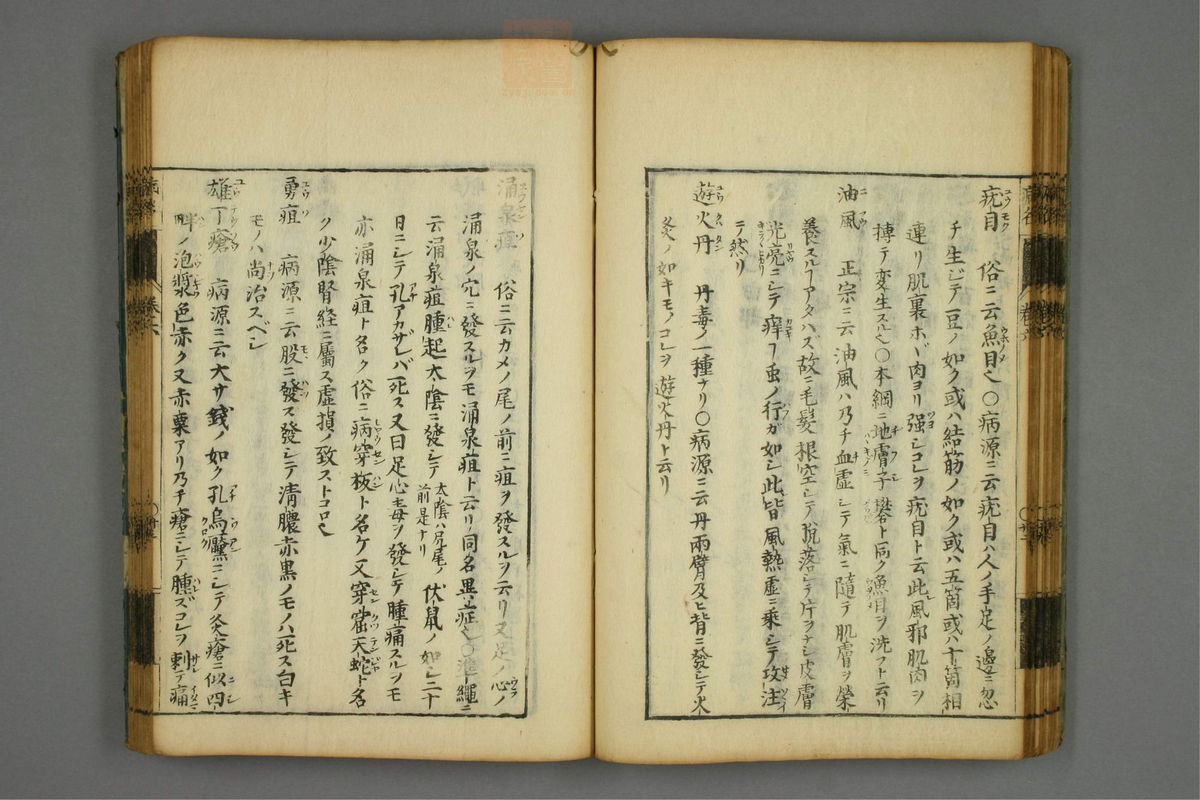 疣目 俗ニ云魚目也〇病源ニ云疣目ハ人ノ手足ノ邊ニ忽
チ生ジテ豆ノ如ク或ハ結筋ノ如ク或ハ五箇或ハ十箇相
連リ肌裏ホヾ肉ヨリ强シコレヲ疣目ト云此風邪肌肉ヲ
搏テ変生スル也〇本綱ニ地膚子 礬ト同ク魚目ヲ洗フト云リ
油風 正宗ニ云油風ハ乃チ血虚シテ氣ニ隨テ肌膚ヲ榮
養スルヿアタハズ故ニ毛髮根空シテ脫落シテ片ヲナシ皮膚
光亮ニシテ痒ヿ虫ノ行ガ如シ此皆風熱虚ニ乘シテ攻注
シテ然リ
遊火丹 丹毒ノ一種ナリ〇病源ニ云丹兩臂及ヒ背ニ發シテ火
灸ノ如キモノコレヲ遊火丹ト云リ
涌泉疽 俗ニ云カメノ尾ノ前ニ疽ヲ發スルヲ云リ又足ノ心ノ
涌泉ノ穴ニ發スルヲモ涌泉疽ト云リ同名異症也〇準繩ニ
云涌泉疽腫起太陰ニ發シテ 太陰ハ尻尾ノ前是ナリ 伏鼠ノ如シ二十
日ニシテ孔アカザレバ死ス又曰足心毒ヲ發シテ腫痛スルヲモ
亦涌泉疽ト名ク俗ニ病穿板ト名ケ又穿窟天蛇ト名
ク少陰腎経ニ屬ス虚損ノ致ストコロ也
勇疽 病源ニ云股ニ發ス發シテ清膿赤黒ノモノハ死ス白キ
モノハ尚治スベシ
雄丁瘡 病源ニ云大サ錢ノ如ク孔烏黶ニシテ灸瘡ニ似四
畔ノ泡漿色赤ク又赤粟アリ乃チ瘡ニシテ腫スコレヲ刺テ痛